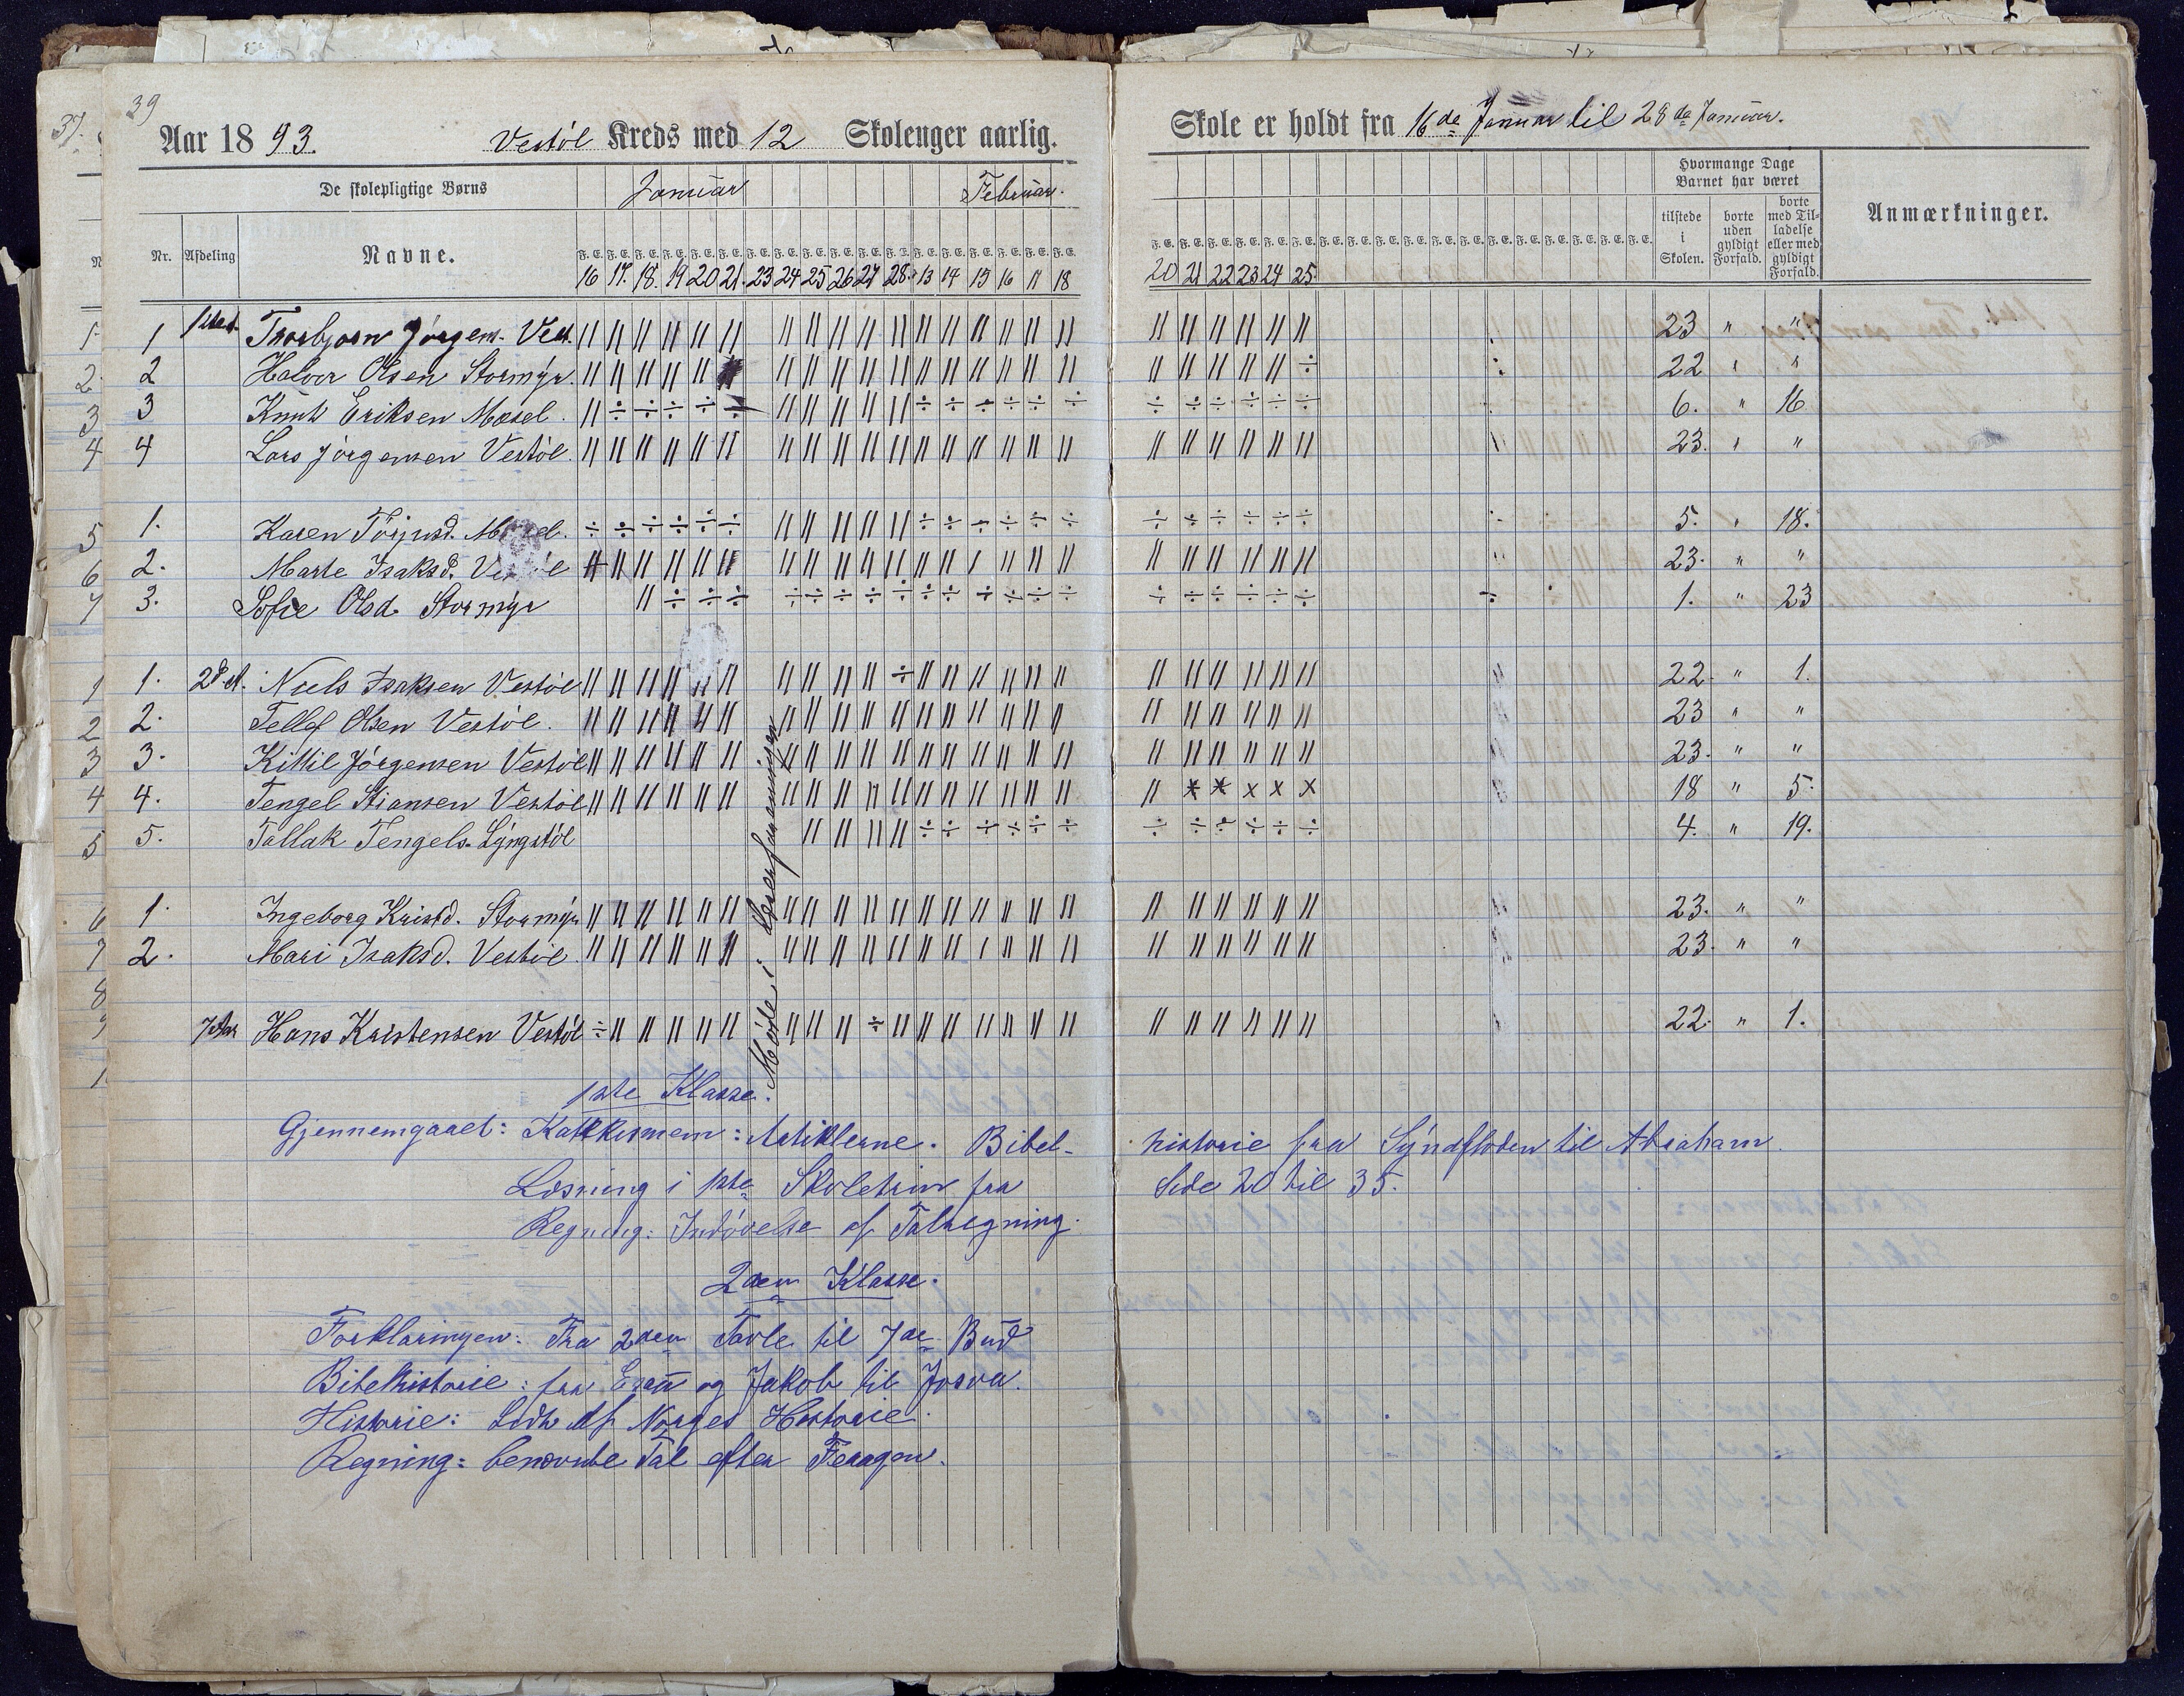 39
Aar 1893. Vestöl Kreds med 12 Skolenger aarlig. Skole er holdt fra 16de Januar til 28de Januar.
De skolepligtige Børns Januar Februar. Hvormange Dage Barnet har været Anmærkninger.
Nr. Afdeling Navne. tilstede i Skolen. borte uden gyldigt Forfald. borte med Tilladelse eller med gyldigt Forfald.
16 17. 18. 19 20 21. 23 24 25 26 27 28. 13 14 15 16 17 18 20 21 22 23 24 25.
1 Torbjørn Jörgens. Vest. 23 " "
2 Halvor Olsen Stormyr. 22 " "
3 Knut Eriksen Mosel. 6. " 16
4 Lars Jörgensen Vestöl. 23. " "
1. Karen Törjusd. 5. " 18.
2. Marte Isaksd. Vestöl 23. " "
3. Sofie Olsd. Stormyr 1. " 23
1. 2d. A. Niels Isaksen Vestöl 22. " 1.
2. Tellef Olsen Vestöl. 23 " "
3. Kittil Jörgensen Vestöl 23. " "
4. Tengel Stiansen Vestöl 18 " 5.
5. Tallak Tengels. Lyngstöl 4. " 19.
1. Ingeborg Kristd. Stormyr 23. " "
2. Mari Isaksd. Vestöl 23. " "
Hans Kristensen Vestöl 22. " 1.
Möde i
1ste Klasse.
Gjennemgaaet: Katekismem: Artiklerne. Bibel- historie fra Syndfloden til Abraham.
Læsning i 1ste Skoletrin fra Side 20 til 35.
Regning: Indövelse af Talregning.
2den Klasse.
Forklaringen: Fra 2den Tavle til 7de Bud
Bibelhistorie: fra Esau og Jakob til Josva.
Historie: Lidt af Norges Historie.
Regning: benævnte Tal efter